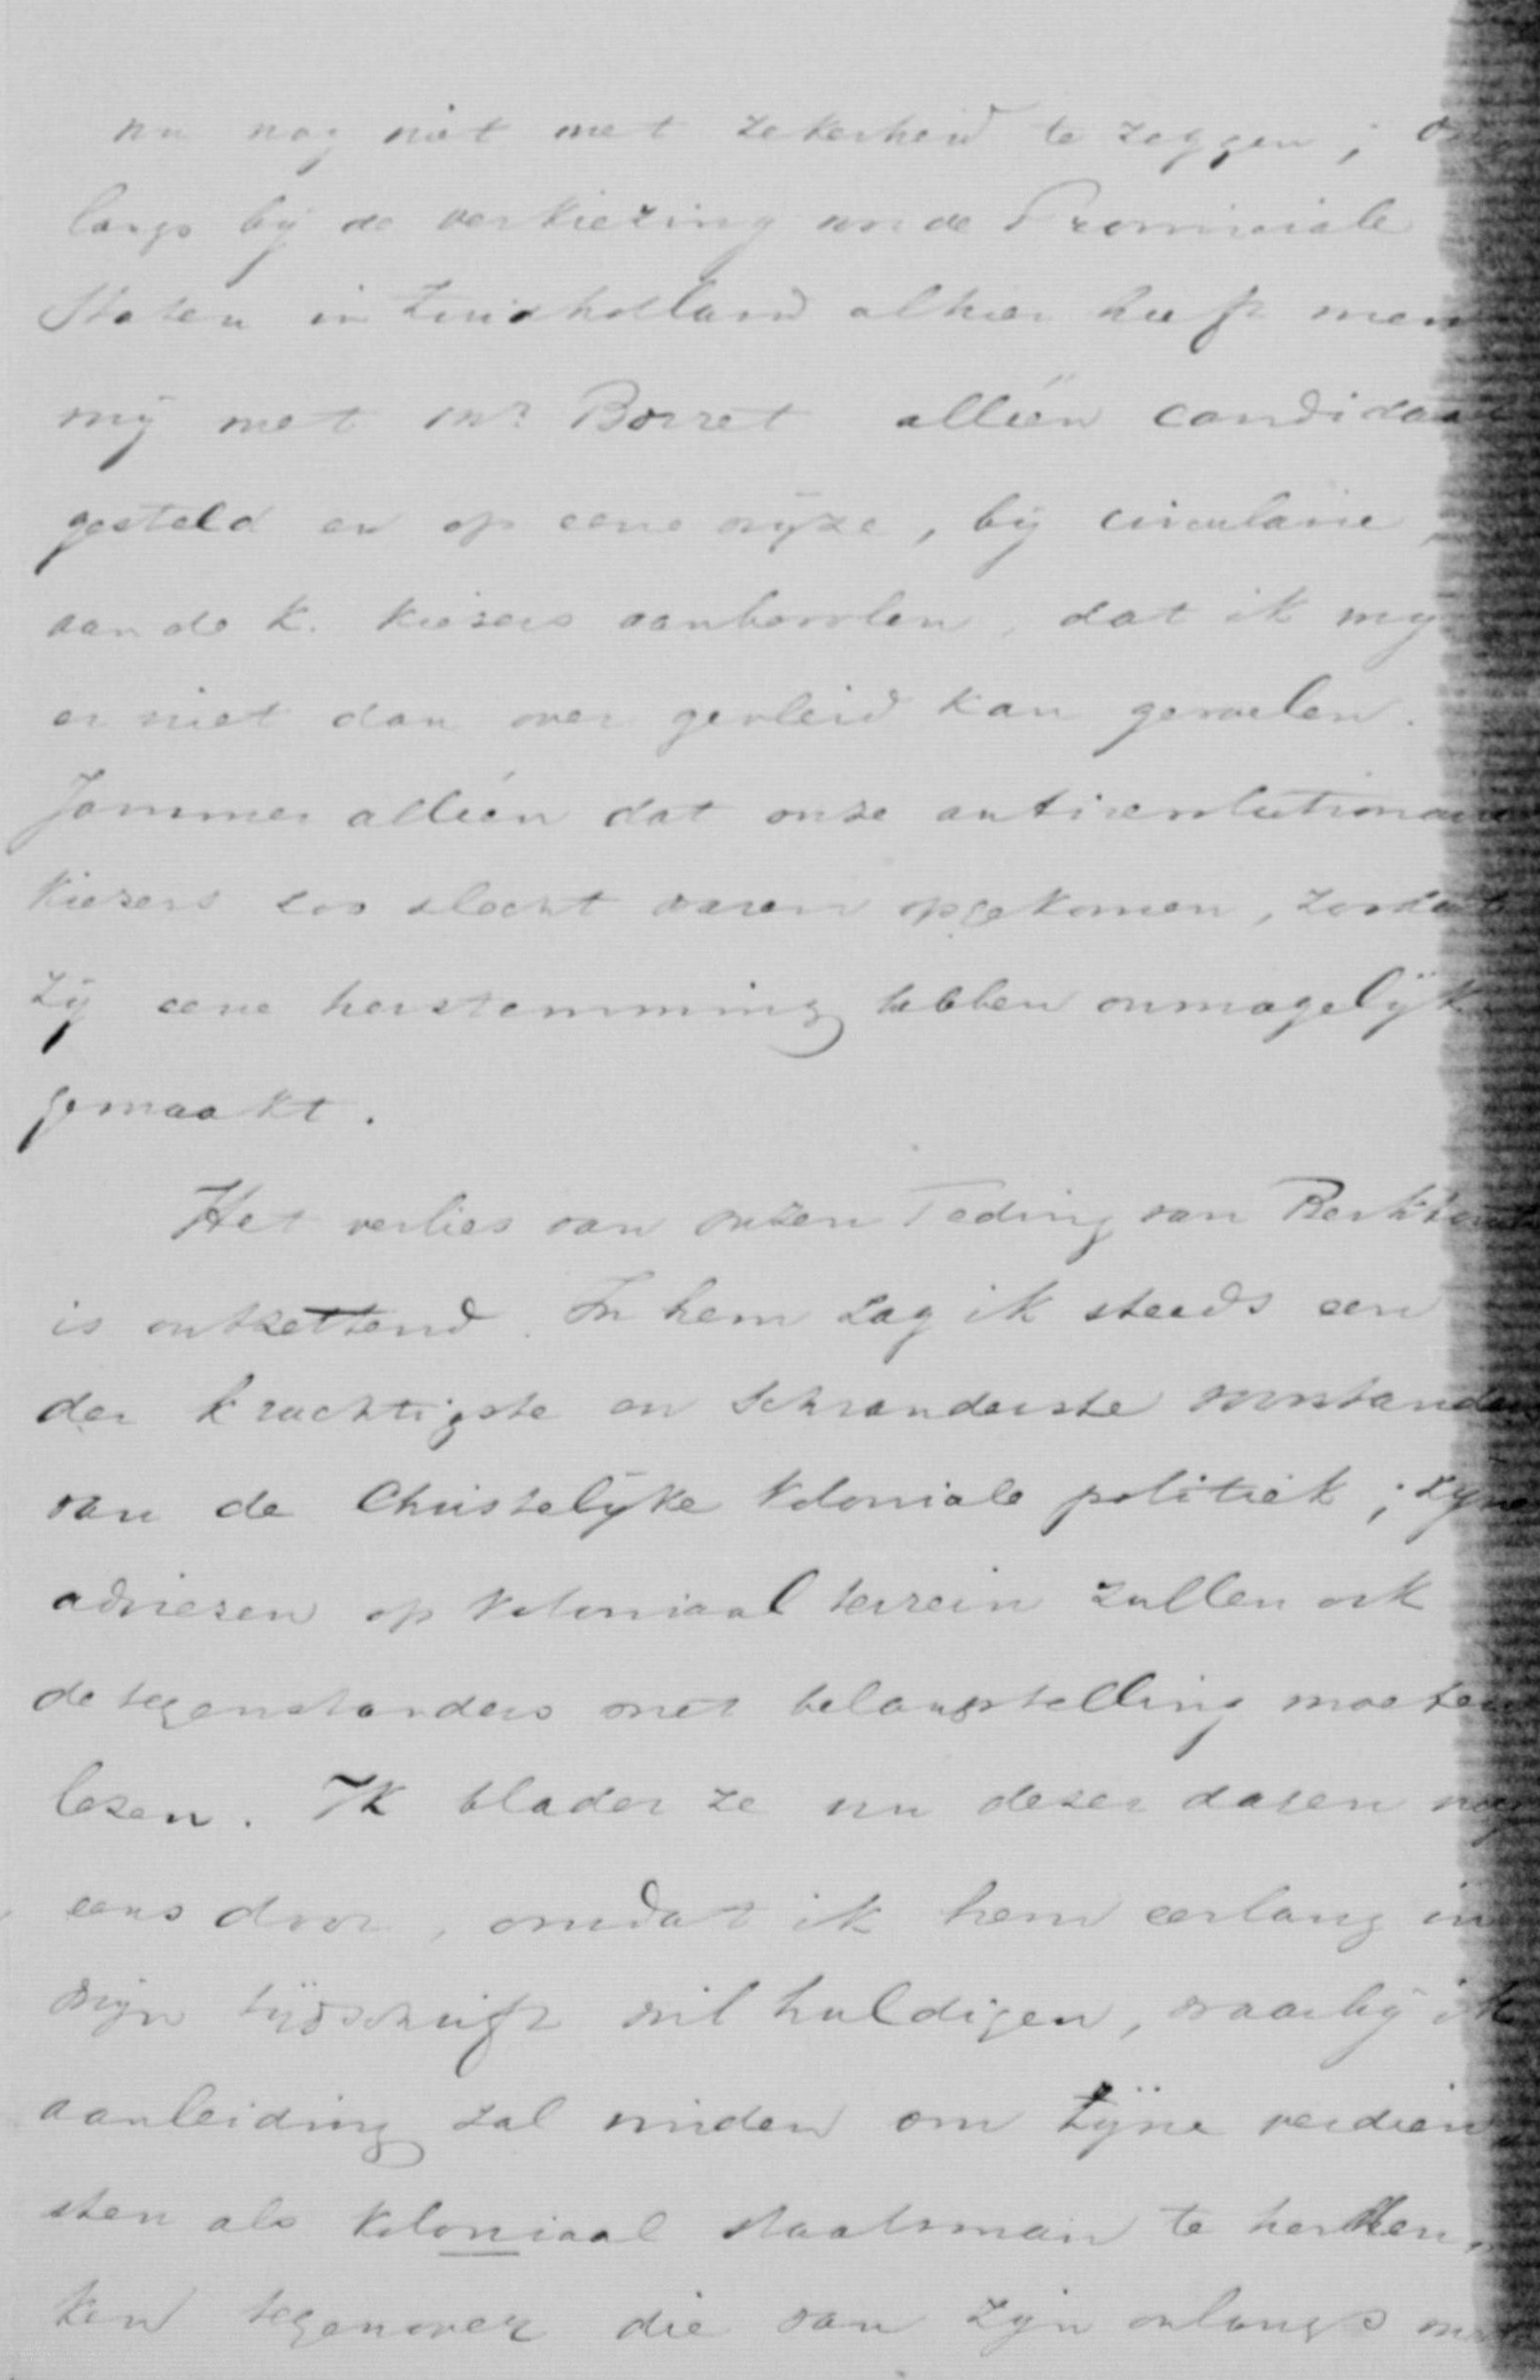 nu nog niet met zekerheid te zeggen; on
langs bij de verkiezing voor de Provinciale
Staten in Zuidholland alhier heeft men
mij met Mr Borret alléén candidaat
gesteld en op eene wijze, bij circulaire,
aan de K. kiezers aanbevolen, dat ik mij
er niet dan over gevleid kan gevoelen.
Jammer alléén dat onze antirevolutionaire
kiezers zoo slecht waren opgekomen, zoodat
zij eene herstemming hebben onmogelijk
gemaakt.
Het verlies van onzen Teding van Berkhout
is ontzettend. In hem zag ik steeds een
der krachtigste en schranderste voorstanders
van de Christelijke Koloniale politiek; zijne
adviezen op Koloniaal terrein zullen ook
de tegenstanders met belangstelling moeten
lezen. Ik blader ze nu dezer dagen nog
eens door, omdat ik hem eerlang in
mijn tijdschrift wil huldigen, waarbij ik
aanleiding zal vinden om zijne verdien
sten als Koloniaal staatsman te herden
ken tegenover die van zijn onlangs